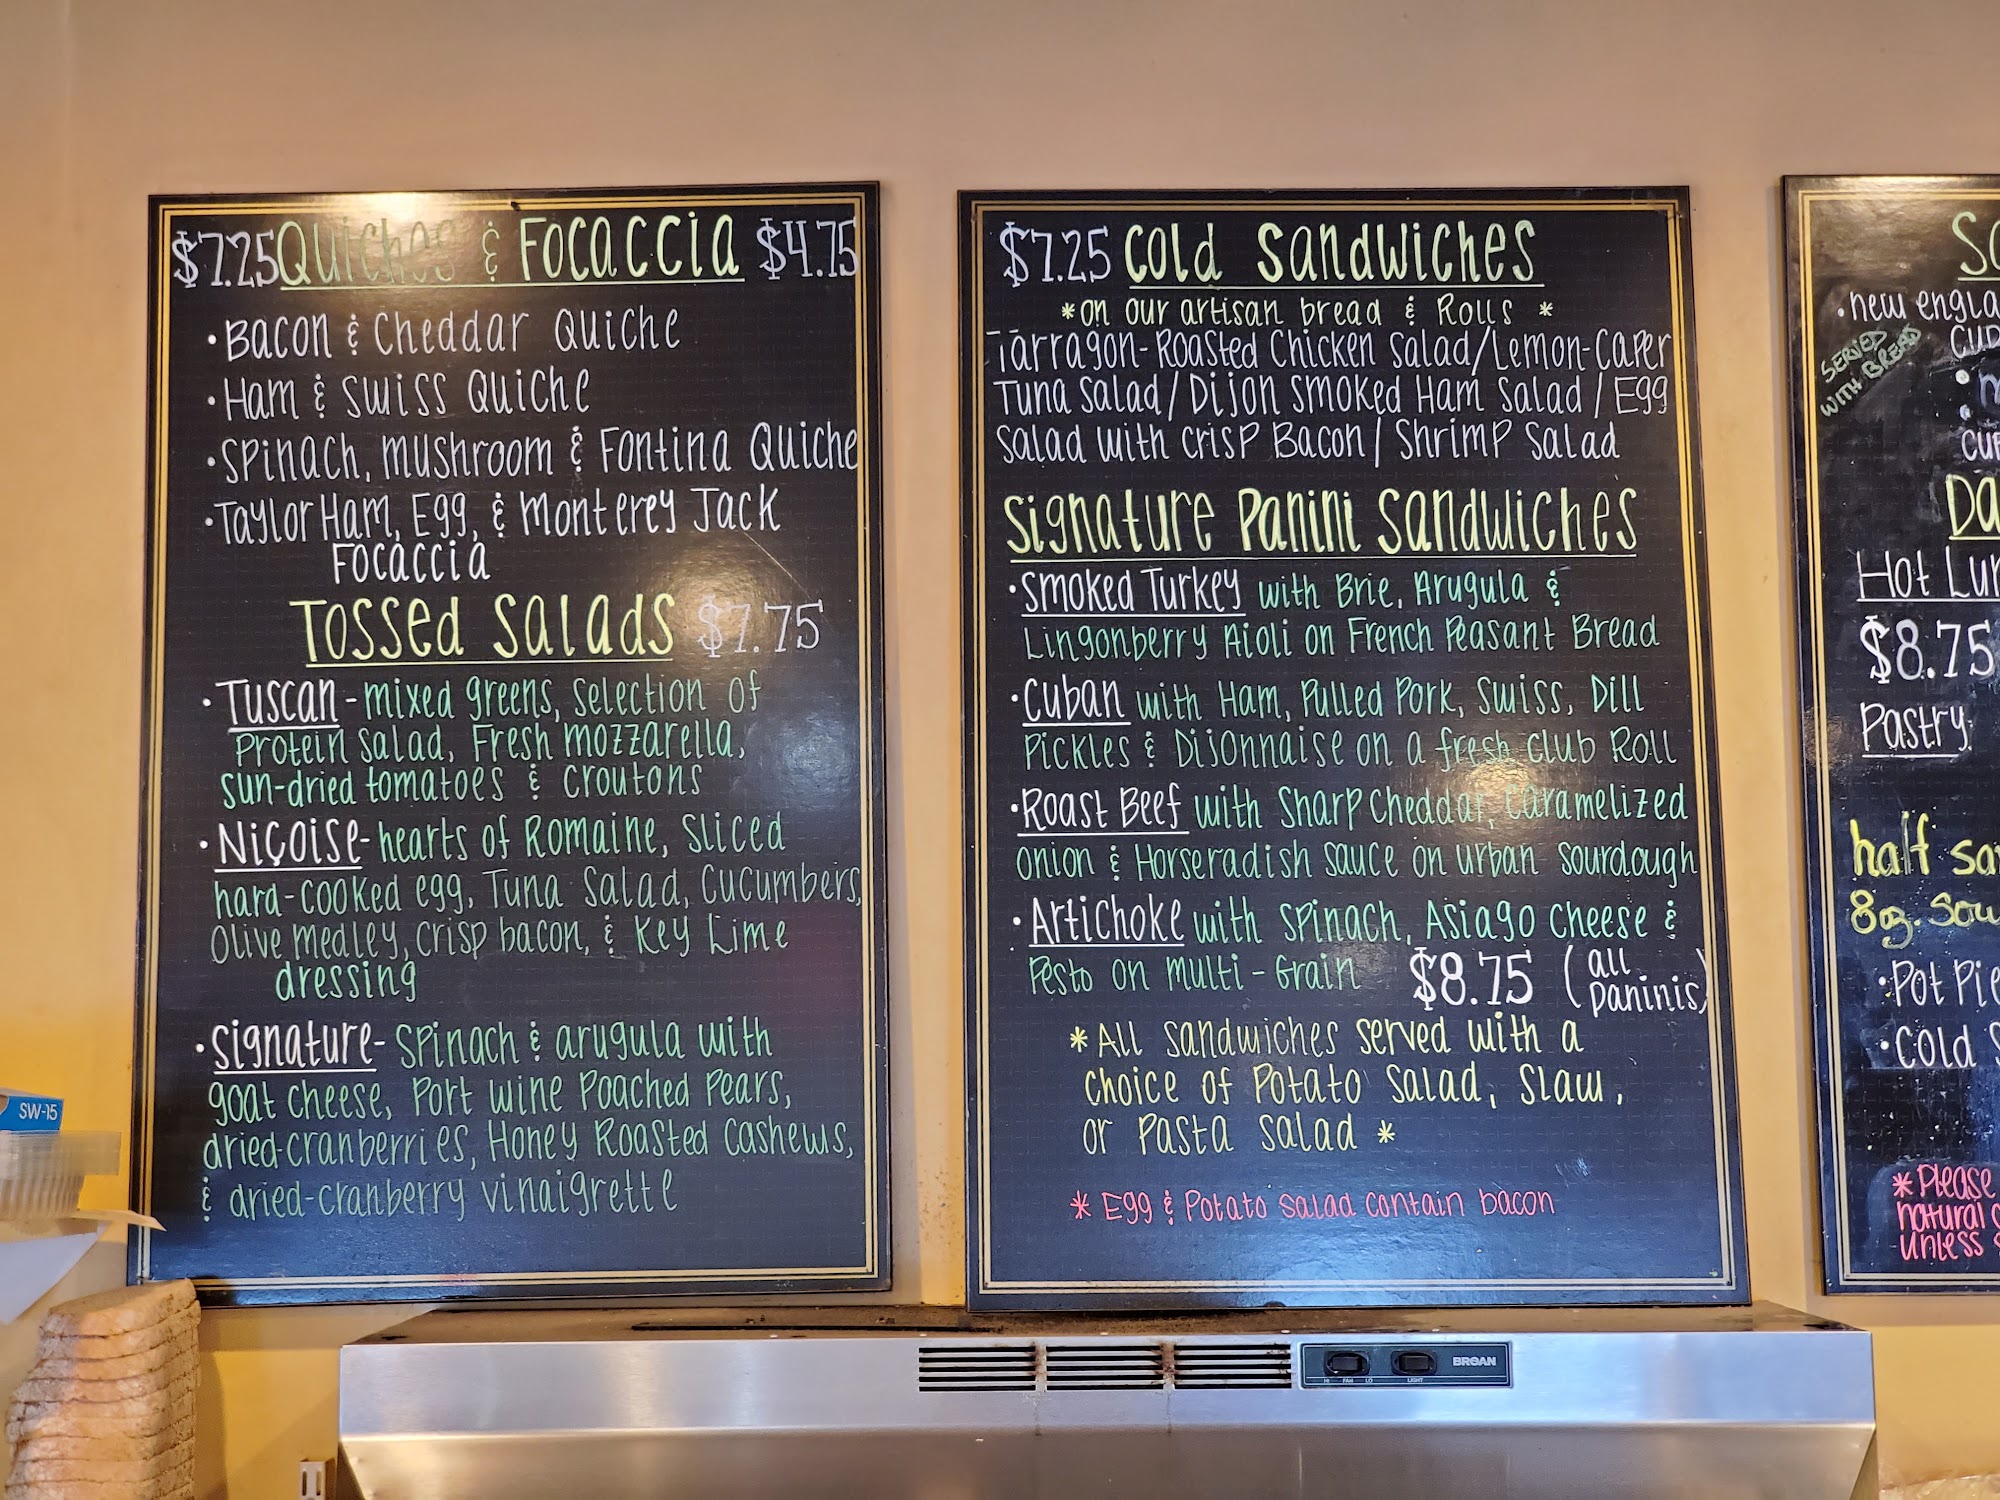 $7.25 Quiches & Focaccia $4.75
• Bacon & Cheddar Quiche
• Ham & Swiss Quiche
• Spinach, mushroom & Fontina Quiche
• Taylor Ham, Egg, & Monterey Jack
Focaccia
Tossed Salads $7.75
• Tuscan - mixed greens, selection of
Protein salad, Fresh mozzarella,
sun-dried tomatoes & croutons
• Niçoise - hearts of Romaine, sliced
hard-cooked egg, Tuna Salad, Cucumbers,
Olive medley, crisp bacon, & Key Lime
dressing
• Signature - Spinach & arugula with
goat cheese, Port wine Poached Pears,
dried-cranberries, Honey Roasted Cashews,
& dried-cranberry vinaigrette
$7.25 Cold Sandwiches
*on our artisan bread & Rolls *
Tarragon-Roasted Chicken Salad/Lemon-Caper
Tuna Salad/Dijon Smoked Ham Salad/Egg
Salad with Crisp Bacon/Shrimp Salad
Signature Panini Sandwiches
• Smoked Turkey with Brie, Arugula &
Lingonberry Aioli on French Peasant Bread
• Cuban with Ham, Pulled Pork, Swiss, Dill
Pickles & Dijonnaise on a fresh Club Roll
• Roast Beef with Sharp Cheddar, Caramelized
onion & Horseradish sauce on urban sourdough
• Artichoke with spinach, Asiago cheese &
Pesto on multi-Grain $8.75 (all
paninis)
* All sandwiches served with a
choice of Potato Salad, Slaw,
or Pasta Salad *
* Egg & Potato salad contain bacon
• new
SERVED
WITH BREAD
Hot
$8.75
Pastry:
half
8oz.
• Pot Pie
• Cold
* Please
natural
unless
SW-15
BROAN
HI FAN LO LIGHT